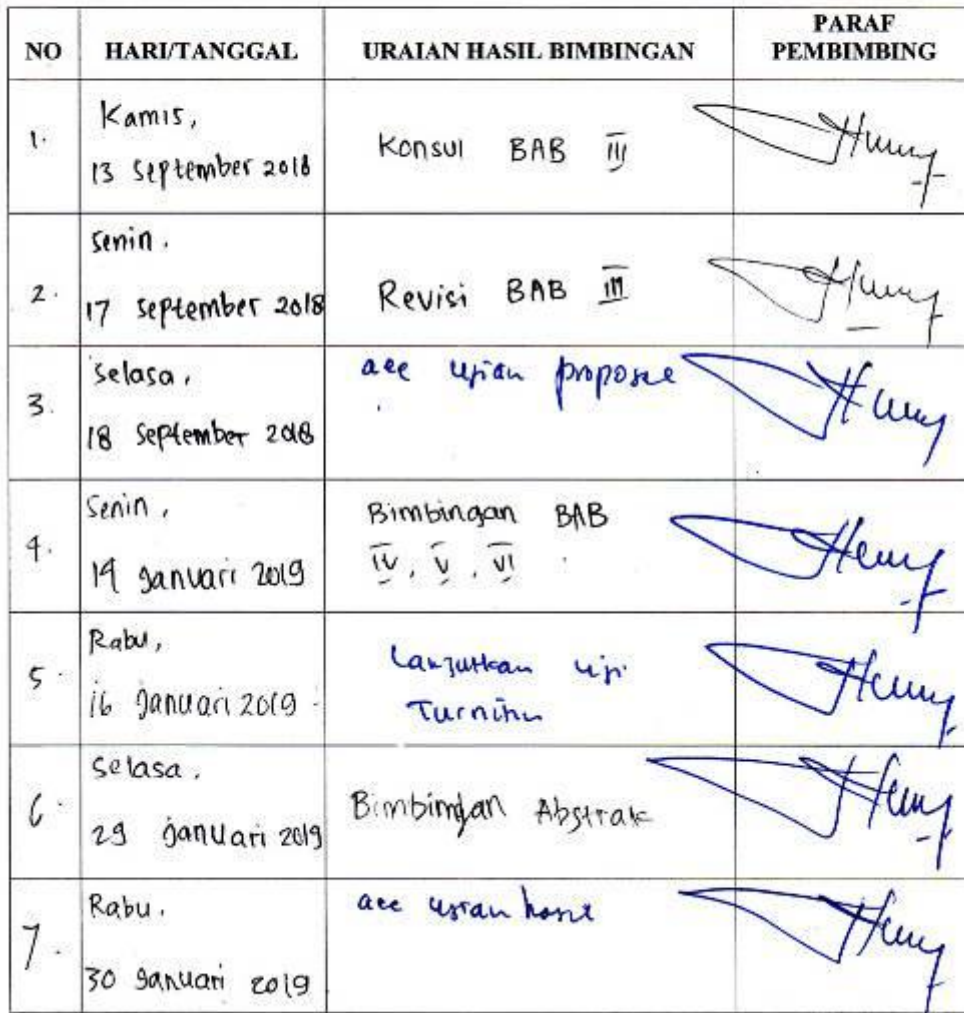 NO HARI/TANGGAL URAIAN HASIL BIMBINGAN PARAF PEMBIMBING
1. Kamis,
13 September 2018
Konsul BAB III
2. Senin.
17 September 2018
Revisi BAB III
3. Selasa,
18 September 2018
acc ujian proposal
4. Senin,
14 Januari 2019
Bimbingan BAB
IV, V, VI
5. Rabu,
16 Januari 2019
Lanjutkan uji
Turnitin
6. Selasa,
29 Januari 2019
Bimbingan Abstrak
7. Rabu.
30 Januari 2019
acc ujian hasil